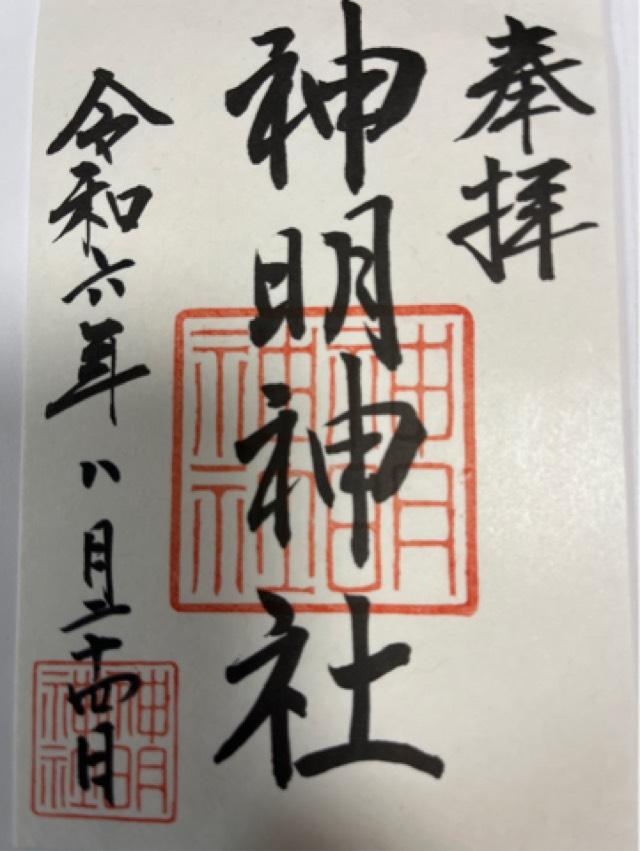 奉拝
神明神社
神明
神社
令和六年八月二十四日
神明
神社